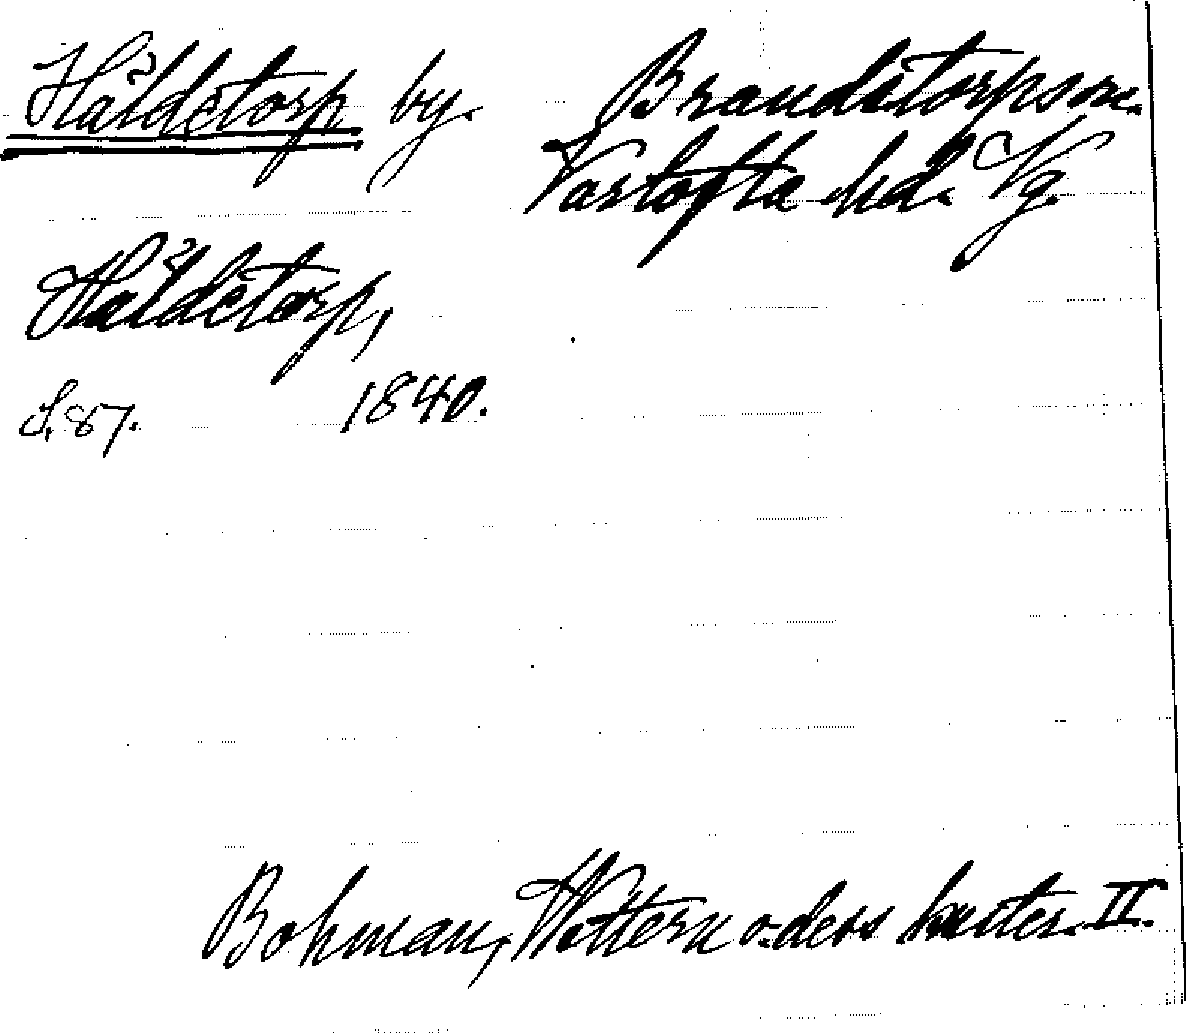 Håldetorp by. Brandstorps sn.
Vartofta hd. Vg.
Håldetorp,
S. 87. 1840.
Bohman, Wettern o. dess kuster. II.